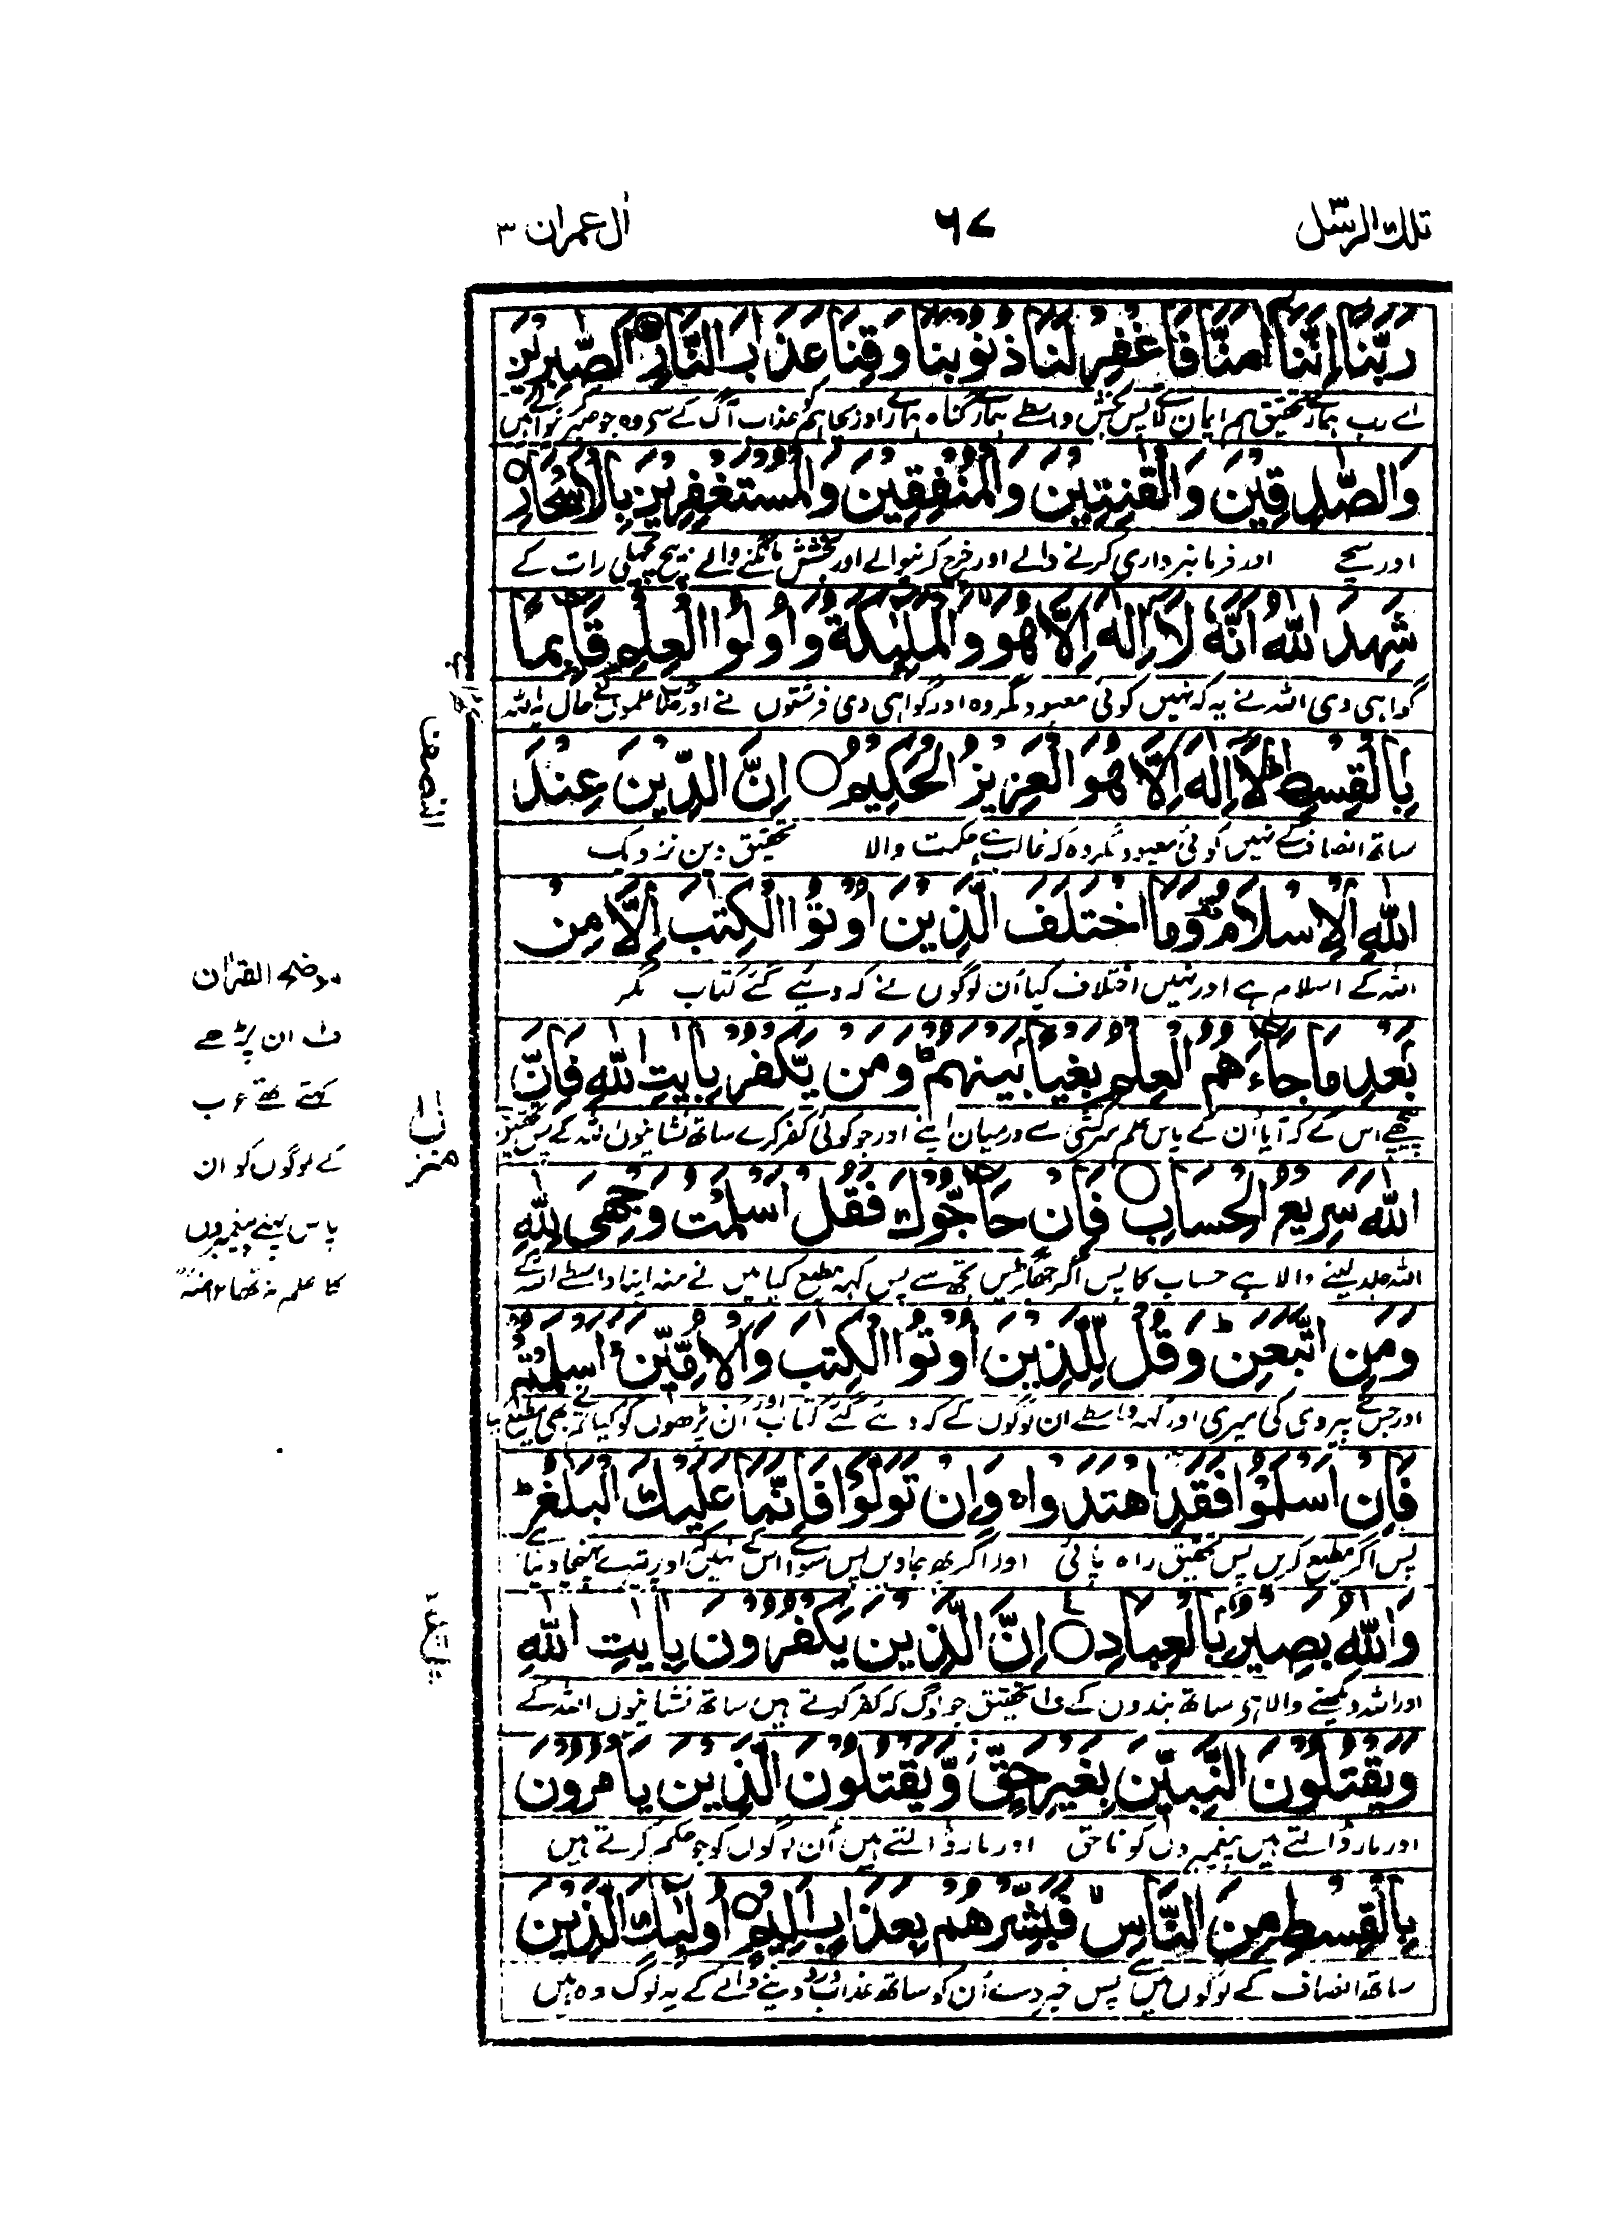 تلك الرسل ٣
٦٧
اٰل عمران ٣
رَبَّنَا اِنَّنَا اٰمَنَّا فَاغْفِرْ لَنَا ذُنُوْبَنَا وَقِنَا عَذَابَ النَّارِ اَلصّٰبِرِيْنَ
اے رب ہمارے تحقیق ہم ایمان لائے پس بخش واسطے ہمارے گناہ ہمارے اور بچا ہم کو عذاب آگ کے سے وہ جو صبر کرنے والے ہیں
وَالصّٰدِقِيْنَ وَالْقٰنِتِيْنَ وَالْمُنْفِقِيْنَ وَالْمُسْتَغْفِرِيْنَ بِالْاَسْحَارِ
اور سچے اور فرمانبرداری کرنے والے اور خرچ کرنیوالے اور بخشش مانگنے والے بیچ پچھلی رات کے
شَهِدَ اللّٰهُ اَنَّهٗ لَآ اِلٰهَ اِلَّا هُوَ وَالْمَلٰٓئِكَةُ وَاُولُوا الْعِلْمِ قَآئِمًا
گواہی دی اللہ نے یہ کہ نہیں کوئی معبود مگر وہ اور گواہی دی فرشتوں نے اور علموں
بِالْقِسْطِ لَآ اِلٰهَ اِلَّا هُوَ الْعَزِيْزُ الْحَكِيْمُ اِنَّ الدِّيْنَ عِنْدَ
ساتھ انصاف کے نہیں کوئی معبود مگر وہ کہ غالب ہے حکمت والا تحقیق دین نزدیک
اللّٰهِ الْاِسْلَامُ وَمَا اخْتَلَفَ الَّذِيْنَ اُوْتُوا الْكِتٰبَ اِلَّا مِنْ
اللہ کے اسلام ہے اور نہیں اختلاف کیا اُن لوگوں نے کہ دیئے گئے کتاب مگر
بَعْدِ مَا جَآءَهُمُ الْعِلْمُ بَغْيًا بَيْنَهُمْ وَمَنْ يَّكْفُرْ بِاٰيٰتِ اللّٰهِ فَاِنَّ
پیچھے اس کے کہ آیا اُن کے پاس علم سرکشی سے درمیان اپنے اور جو کوئی کفر کرے ساتھ نشانیوں اللہ کے پس تحقیق
اللّٰهَ سَرِيْعُ الْحِسَابِ فَاِنْ حَآجُّوْكَ فَقُلْ اَسْلَمْتُ وَجْهِيَ لِلّٰهِ
اللہ جلد لینے والا ہے حساب کا پس اگر جھگڑیں تجھ سے پس کہہ مطیع کیا میں نے منہ اپنا واسطے اللہ کے
وَمَنِ اتَّبَعَنِ وَقُلْ لِّلَّذِيْنَ اُوْتُوا الْكِتٰبَ وَالْاُمِّيّٖنَ ءَاَسْلَمْتُمْ
اور جس نے پیروی کی میری اور کہہ واسطے ان لوگوں کے کہ دئے گئے کتاب اور اَن پڑھوں کو کیا تم بھی مطیع
فَاِنْ اَسْلَمُوْا فَقَدِ اهْتَدَوْا وَاِنْ تَوَلَّوْا فَاِنَّمَا عَلَيْكَ الْبَلٰغُ
پس اگر مطیع کریں پس تحقیق راہ پائی اور اگر پھر جاویں پس سوائے اس کے نہیں کہ اوپر تیرے پہنچا دینا
وَاللّٰهُ بَصِيْرٌ بِالْعِبَادِ اِنَّ الَّذِيْنَ يَكْفُرُوْنَ بِاٰيٰتِ اللّٰهِ
اور اللہ دیکھنے والا ہی ساتھ بندوں کے ف۱ تحقیق جو لوگ کہ کفر کرتے ہیں ساتھ نشانیوں اللہ کے
وَيَقْتُلُوْنَ النَّبِيّٖنَ بِغَيْرِ حَقٍّ وَّيَقْتُلُوْنَ الَّذِيْنَ يَاْمُرُوْنَ
اور مار ڈالتے ہیں پیغمبروں کو ناحق اور مار ڈالتے ہیں اُن لوگوں کو جو حکم کرتے ہیں
بِالْقِسْطِ مِنَ النَّاسِ فَبَشِّرْهُمْ بِعَذَابٍ اَلِيْمٍ اُولٰٓئِكَ الَّذِيْنَ
ساتھ انصاف کے لوگوں میں سے پس خبر دے اُن کو ساتھ عذاب درد دینے والے کے یہ لوگ وہ ہیں
النصف
منزل
موضح القرآن
ف۱ ان پڑھے
کہتے تھے عرب
کے لوگوں کو ان
پاس پہلے پیغمبروں
کا علم نہ تھا ۱۲ منہ